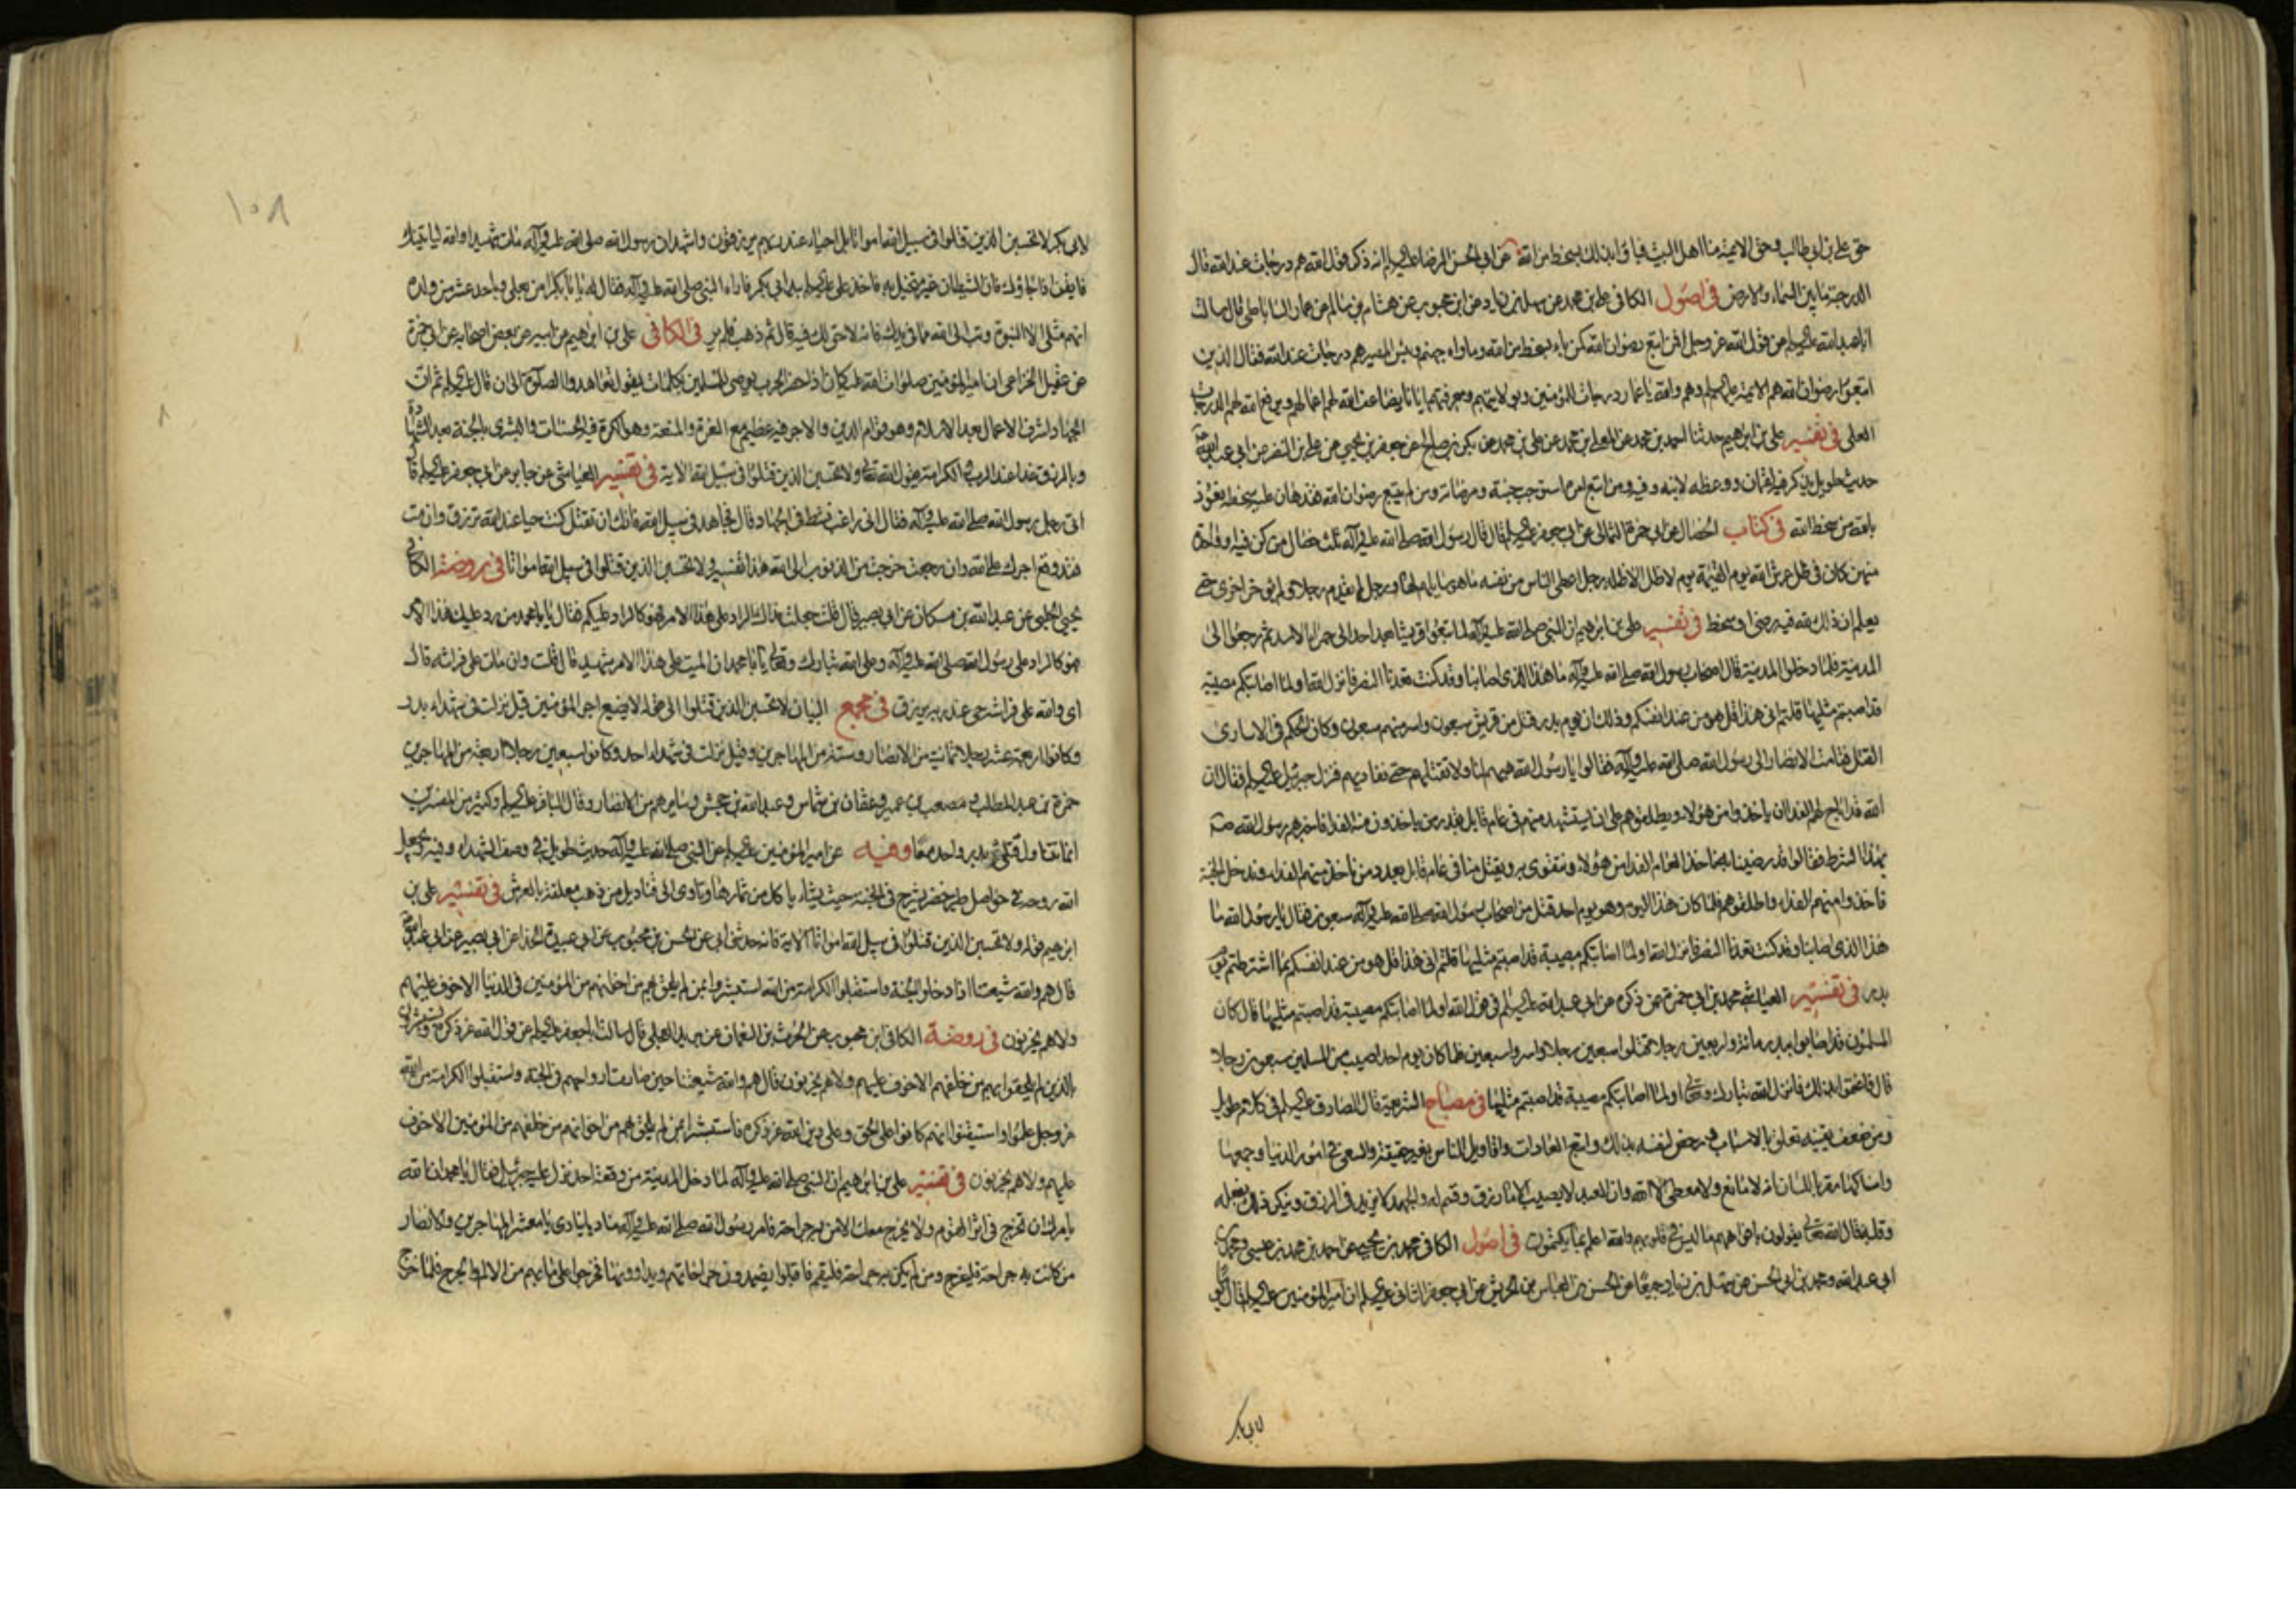 حق علي بن ابي طالب وحق الائمة منا اهل البيت فباؤا بذلك بسخط من الله عن ابي الحسن الرضا عليه السلام انه ذكر قول الله هم درجات عند الله قال
الدرجة ما بين السماء والارض في اصول الكافي علي بن محمد عن سهل بن زياد عن ابن محبوب عن هشام بن سالم عن عمار الساباطي قال سالت
ابا عبد الله عليه السلام عن قول الله عز وجل افمن اتبع رضوان الله كمن باء بسخط من الله وماواه جهنم وبئس المصير هم درجات عند الله فقال الذين
اتبعوا رضوان الله هم الائمة عليهم السلم وهم والله يا عمار درجات للمؤمنين وبولايتهم ومعرفتهم ايانا يضاعف الله لهم اعمالهم ويرفع الله لهم الدرجات
العلى في تفسير علي بن ابراهيم حدثنا احمد بن محمد عن المعلى بن محمد عن علي بن محمد عن بكر بن صالح عن جعفر بن يحيى عن علي بن النضر عن ابي عبد الله
حديث طويل يذكر فيه لقمان ووعظه لابنه وفيه ومن اتبع امره استوجب جنته ومرضاته ومن لم يتبع رضوان الله فقد هان عليه سخطه نعوذ
بالله من سخط الله في كتاب الخصال عن ابي حمزة الثمالي عن ابي جعفر عليه السلام قال قال رسول الله صلى الله عليه وآله ثلث خصال من كن فيه او واحدة
منهن كان في ظل عرش الله يوم القيمة يوم لا ظل الا ظله رجل اعطى الناس من نفسه ما هو سايلهم لها ورجل لم يقدم رجلا ولم يؤخر اخرى حتى
يعلم ان ذلك لله فيه رضى او سخط في تفسير علي بن ابراهيم ان النبي صلى الله عليه وآله لما تبعوا قريشا بعد احد الى حمراء الاسد ثم رجعوا الى
المدينة فلما دخلوا المدينة قال اصحاب رسول الله صلى الله عليه وآله ما هذا الذي اصابنا وقد كنت تعدنا النصر فانزل الله اولما اصابتكم مصيبة
قد اصبتم مثليها قلتم انى هذا قل هو من عند انفسكم وذلك ان يوم بدر قتل من قريش سبعون واسر منهم سبعون وكان الحكم في الاسارى
القتل فقامت الانصار الى رسول الله صلى الله عليه وآله فقالوا يا رسول الله هبهم لنا ولا تقتلهم حتى نفاديهم فنزل جبرئيل عليه السلم فقال ان
الله قد اباح لهم الفداء ان ياخذوا من هؤلاء ويطلقوهم على ان يستشهد منهم في عام قابل بقدر من ياخذون منه الفداء فاخبرهم رسول الله
بهذا الشرط فقالوا قد رضينا به ناخذ العام الفداء من هؤلاء ونتقوى به ويقتل منا في عام قابل بعدد من ناخذ منهم الفداء وندخل الجنة
فاخذوا منهم الفداء واطلقوهم فلما كان هذا اليوم وهو يوم احد قتل من اصحاب رسول الله صلى الله عليه وآله سبعون فقالوا يا رسول الله ما
هذا الذي اصابنا وقد كنت تعدنا النصر فانزل الله اولما اصابتكم مصيبة قد اصبتم مثليها قلتم انى هذا قل هو من عند انفسكم بما اشترطتم يوم
بدر في تفسير العياشي محمد بن ابي حمزة عمن ذكره عن ابي عبد الله عليه السلم في قول الله اولما اصابتكم مصيبة قد اصبتم مثليها قال كان
المسلمون قد اصابوا ببدر مائة واربعين رجلا قتلوا سبعين رجلا واسروا سبعين فلما كان يوم احد اصيب من المسلمين سبعون رجلا
قال فاغتموا بذلك فانزل الله تبارك وتعالى اولما اصابتكم مصيبة قد اصبتم مثليها في مصباح الشريعة قال الصادق عليه السلم في كلام طويل
ومن ضعف يقينه تعلق بالاسباب ورخص لنفسه بذلك واتبع العادات واقاويل الناس بغير حقيقة والسعي في امور الدنيا وجمعها
وامساكها مقر باللسان انه لا مانع ولا معطي الا الله وان العبد لا يصيب الا ما رزق وقسم له والجهد لا يزيد في الرزق وينكر ذلك بفعله
وقلبه قال الله تعالى يقولون بافواههم ما ليس في قلوبهم والله اعلم بما يكتمون في اصول الكافي محمد بن يحيى عن احمد بن محمد بن عيسى ومحمد بن
ابي عبد الله ومحمد بن ابي الحسن عن سهل بن زياد جميعا عن الحسن بن العباس بن الحريش عن ابي جعفر الثاني عليه السلم ان امير المؤمنين عليه السلم قال
لابي بكر
لابي بكر لا تحسبن الذين قتلوا في سبيل الله امواتا بل احياء عند ربهم يرزقون واشهد ان رسول الله صلى الله عليه وآله مات شهيدا والله لياتينك
فايقن اذا جاؤك فان الشيطان غير متخيل به فاخذ علي عليه السلم بيد ابي بكر فاراه النبي صلى الله عليه وآله فقال له يا ابا بكر امن بعلي وباحد عشر من ولده
انهم مثلي الا النبوة وتب الى الله مما في يدك فانه لا حق لك فيه قال ثم ذهب فلم ير في الكافي علي بن ابراهيم عن ابيه عن بعض اصحابه عن ابي حمزة
عن عقيل الخزاعي ان امير المؤمنين صلوات الله عليه كان اذا حضر الحرب يوصي المسلمين بكلمات يقول تعاهدوا الصلوة الى ان قال عليه السلم ثم ان
الجهاد اشرف الاعمال بعد الاسلام وهو قوام الدين والاجر فيه عظيم مع العزة والمنعة وهو الكرة فيه الحسنات والبشرى بالجنة بعد الشهادة
وبالرزق غدا عند الرب والكرامة يقول الله تعالى ولا تحسبن الذين قتلوا في سبيل الله الآية في تفسير العياشي عن جابر عن ابي جعفر عليه السلم قال
اتى رجل رسول الله صلى الله عليه وآله فقال اني راغب نشط في الجهاد قال فجاهد في سبيل الله فانك ان تقتل كنت حيا عند الله ترزق وان مت
فقد وقع اجرك على الله وان رجعت خرجت من الذنوب الى الله هذا تفسير ولا تحسبن الذين قتلوا في سبيل الله امواتا في روضة الكافي
يحيى الحلبي عن عبد الله بن مسكان عن ابي بصير قال قلت جعلت فداك الراد علي هذا الامر فهو كالراد عليكم فقال يا با محمد من رد عليك هذا الامر
فهو كالراد على رسول الله صلى الله عليه وآله وعلى الله تبارك وتعالى يا با محمد ان الميت على هذا الامر شهيد قال قلت وان مات على فراشه قال
اي والله على فراشه حي عند ربه يرزق في مجمع البيان لا تحسبن الذين قتلوا الى قوله لا يضيع اجر المؤمنين قيل نزلت في شهداء بدر
وكانوا اربعة عشر رجلا ثمانية من الانصار وستة من المهاجرين وقيل نزلت في شهداء احد وكانوا سبعين رجلا اربعة من المهاجرين
حمزة بن عبد المطلب ومصعب بن عمير وعثمان بن شماس وعبد الله بن جحش وسايرهم من الانصار وقال الباقر عليه السلم وكثير من المفسرين
انها تتناول قتلى بدر واحد معا وفيه عن امير المؤمنين عليه السلم عن النبي صلى الله عليه وآله حديث طويل في وصف الشهداء وفيه ويجعل
الله روحه في حواصل طير خضر تسرح في الجنة حيث يشاء ياكل من ثمارها وتاوى الى قناديل من ذهب معلقة بالعرش في تفسير علي بن
ابرهيم قوله ولا تحسبن الذين قتلوا في سبيل الله امواتا الآية فانه حدثني ابي عن الحسن بن محبوب عن ابي عبيدة الحذاء عن ابي بصير عن ابي عبد الله
قال هم والله شيعتنا اذا دخلوا الجنة واستقبلوا الكرامة من الله استبشروا بمن لم يلحق بهم من اخوانهم من المؤمنين في الدنيا الا خوف عليهم
ولا هم يحزنون في روضة الكافي ابن محبوب عن الحرث بن النعمان عن بريد العجلي قال سالت ابا جعفر عليه السلم عن قول الله عز ذكره ويستبشرون
بالذين لم يلحقوا بهم من خلفهم الا خوف عليهم ولا هم يحزنون قال هم والله شيعتنا حين صارت ارواحهم في الجنة واستقبلوا الكرامة من الله
عز وجل علموا واستيقنوا انهم كانوا على الحق وعلى دين الله عز ذكره فاستبشروا بمن لم يلحق بهم من اخوانهم من خلفهم من المؤمنين الا خوف
عليهم ولا هم يحزنون في تفسير علي بن ابرهيم ان النبي صلى الله عليه وآله لما دخل المدينة من وقعة احد نزل عليه جبرئيل فقال يا محمد ان الله
يامرك ان تخرج في اثر القوم ولا يخرج معك الا من به جراحة فامر رسول الله صلى الله عليه وآله مناديا ينادي يا معشر المهاجرين والانصار
من كانت به جراحة فليخرج ومن لم يكن به جراحة فليقم فاقبلوا يضمدون جراحاتهم ويداوونها فخرجوا على ما بهم من الالم والجرح فلما خرج
١٥٨